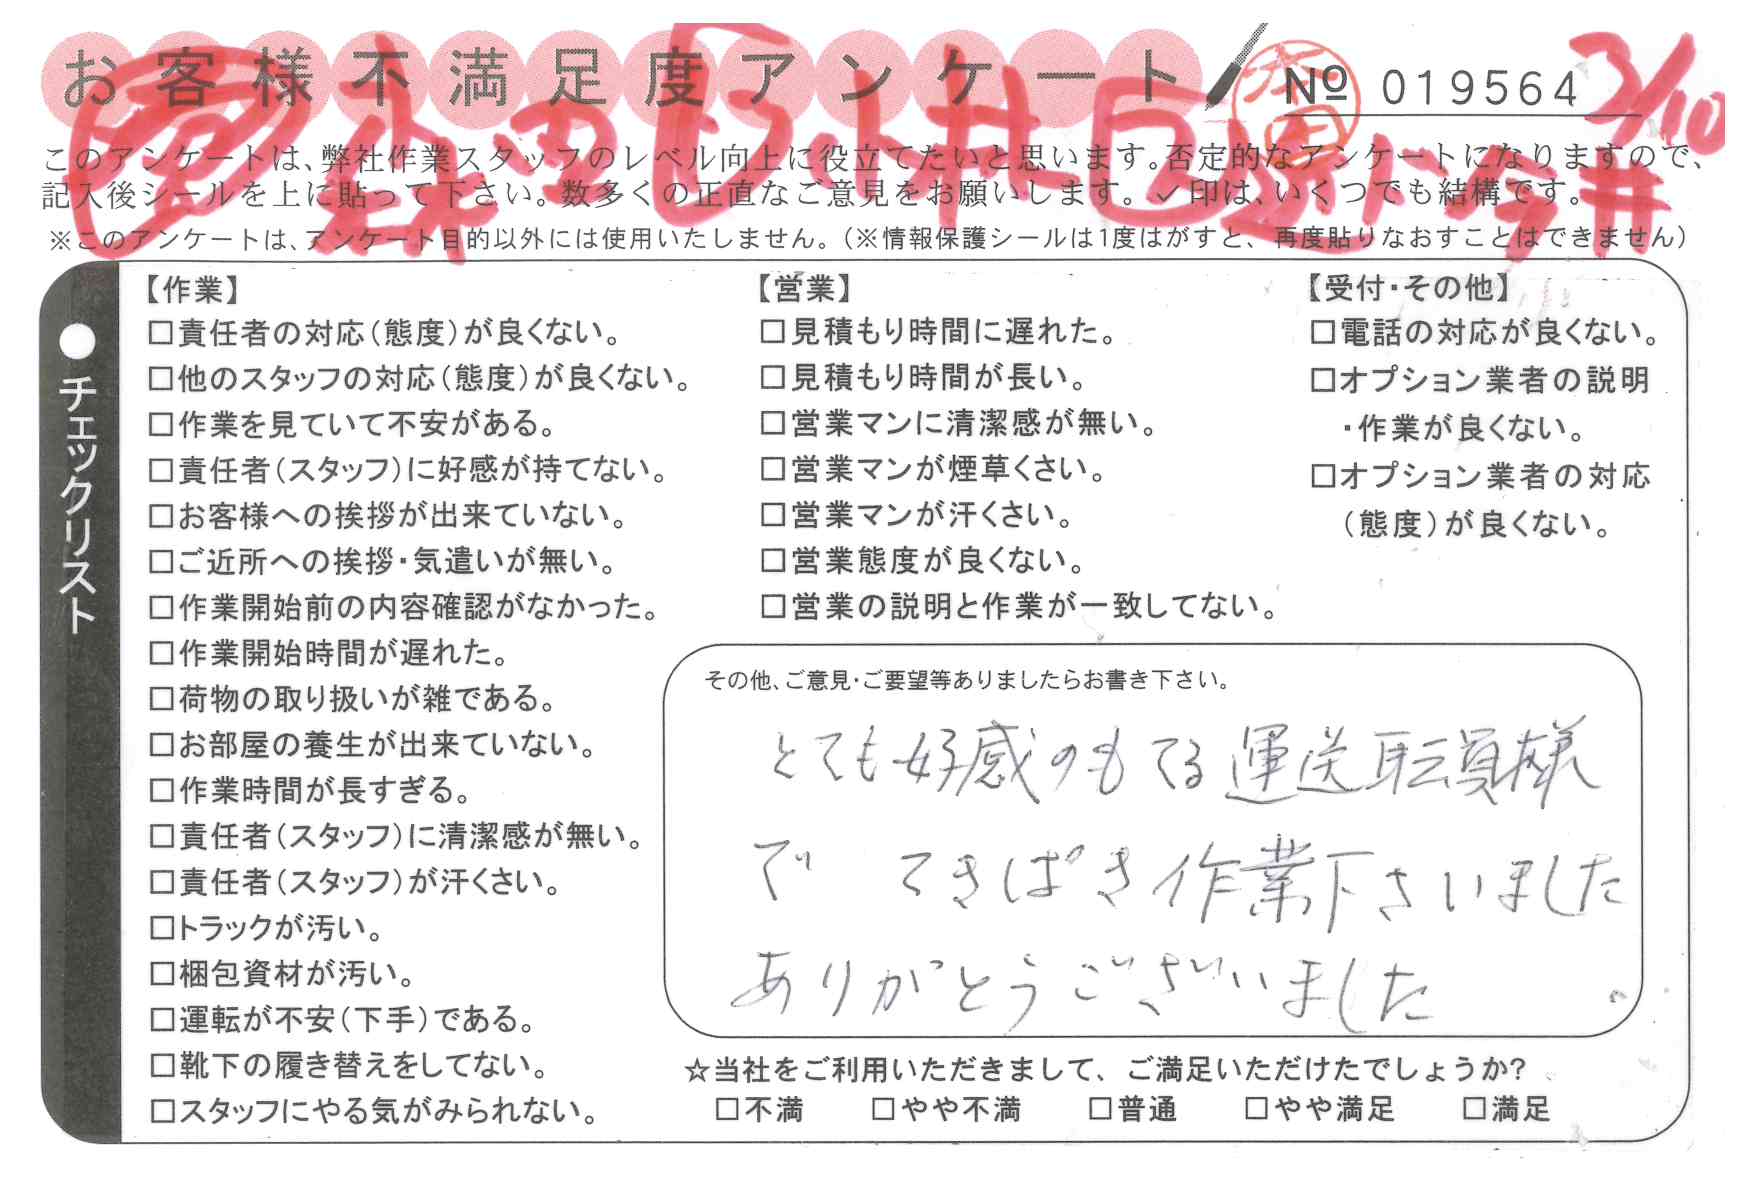 お客様不満足度アンケート
№ 019564
本田
3/10
このアンケートは、弊社作業スタッフのレベル向上に役立てたいと思います。否定的なアンケートになりますので、
記入後シールを上に貼って下さい。数多くの正直なご意見をお願いします。✓印は、いくつでも結構です。
※このアンケートは、アンケート目的以外には使用いたしません。(※情報保護シールは1度はがすと、再度貼りなおすことはできません)
●チェックリスト
【作業】
□責任者の対応(態度)が良くない。
□他のスタッフの対応(態度)が良くない。
□作業を見ていて不安がある。
□責任者(スタッフ)に好感が持てない。
□お客様への挨拶が出来ていない。
□ご近所への挨拶・気遣いが無い。
□作業開始前の内容確認がなかった。
□作業開始時間が遅れた。
□荷物の取り扱いが雑である。
□お部屋の養生が出来ていない。
□作業時間が長すぎる。
□責任者(スタッフ)に清潔感が無い。
□責任者(スタッフ)が汗くさい。
□トラックが汚い。
□梱包資材が汚い。
□運転が不安(下手)である。
□靴下の履き替えをしてない。
□スタッフにやる気がみられない。
【営業】
□見積もり時間に遅れた。
□見積もり時間が長い。
□営業マンに清潔感が無い。
□営業マンが煙草くさい。
□営業マンが汗くさい。
□営業態度が良くない。
□営業の説明と作業が一致してない。
【受付・その他】
□電話の対応が良くない。
□オプション業者の説明
・作業が良くない。
□オプション業者の対応
(態度)が良くない。
その他、ご意見・ご要望等ありましたらお書き下さい。
とても好感のもてる運送転員様
で てきぱき作業下さいました
ありがとうございました。
☆当社をご利用いただきまして、ご満足いただけたでしょうか?
□不満 □やや不満 □普通 □やや満足 □満足